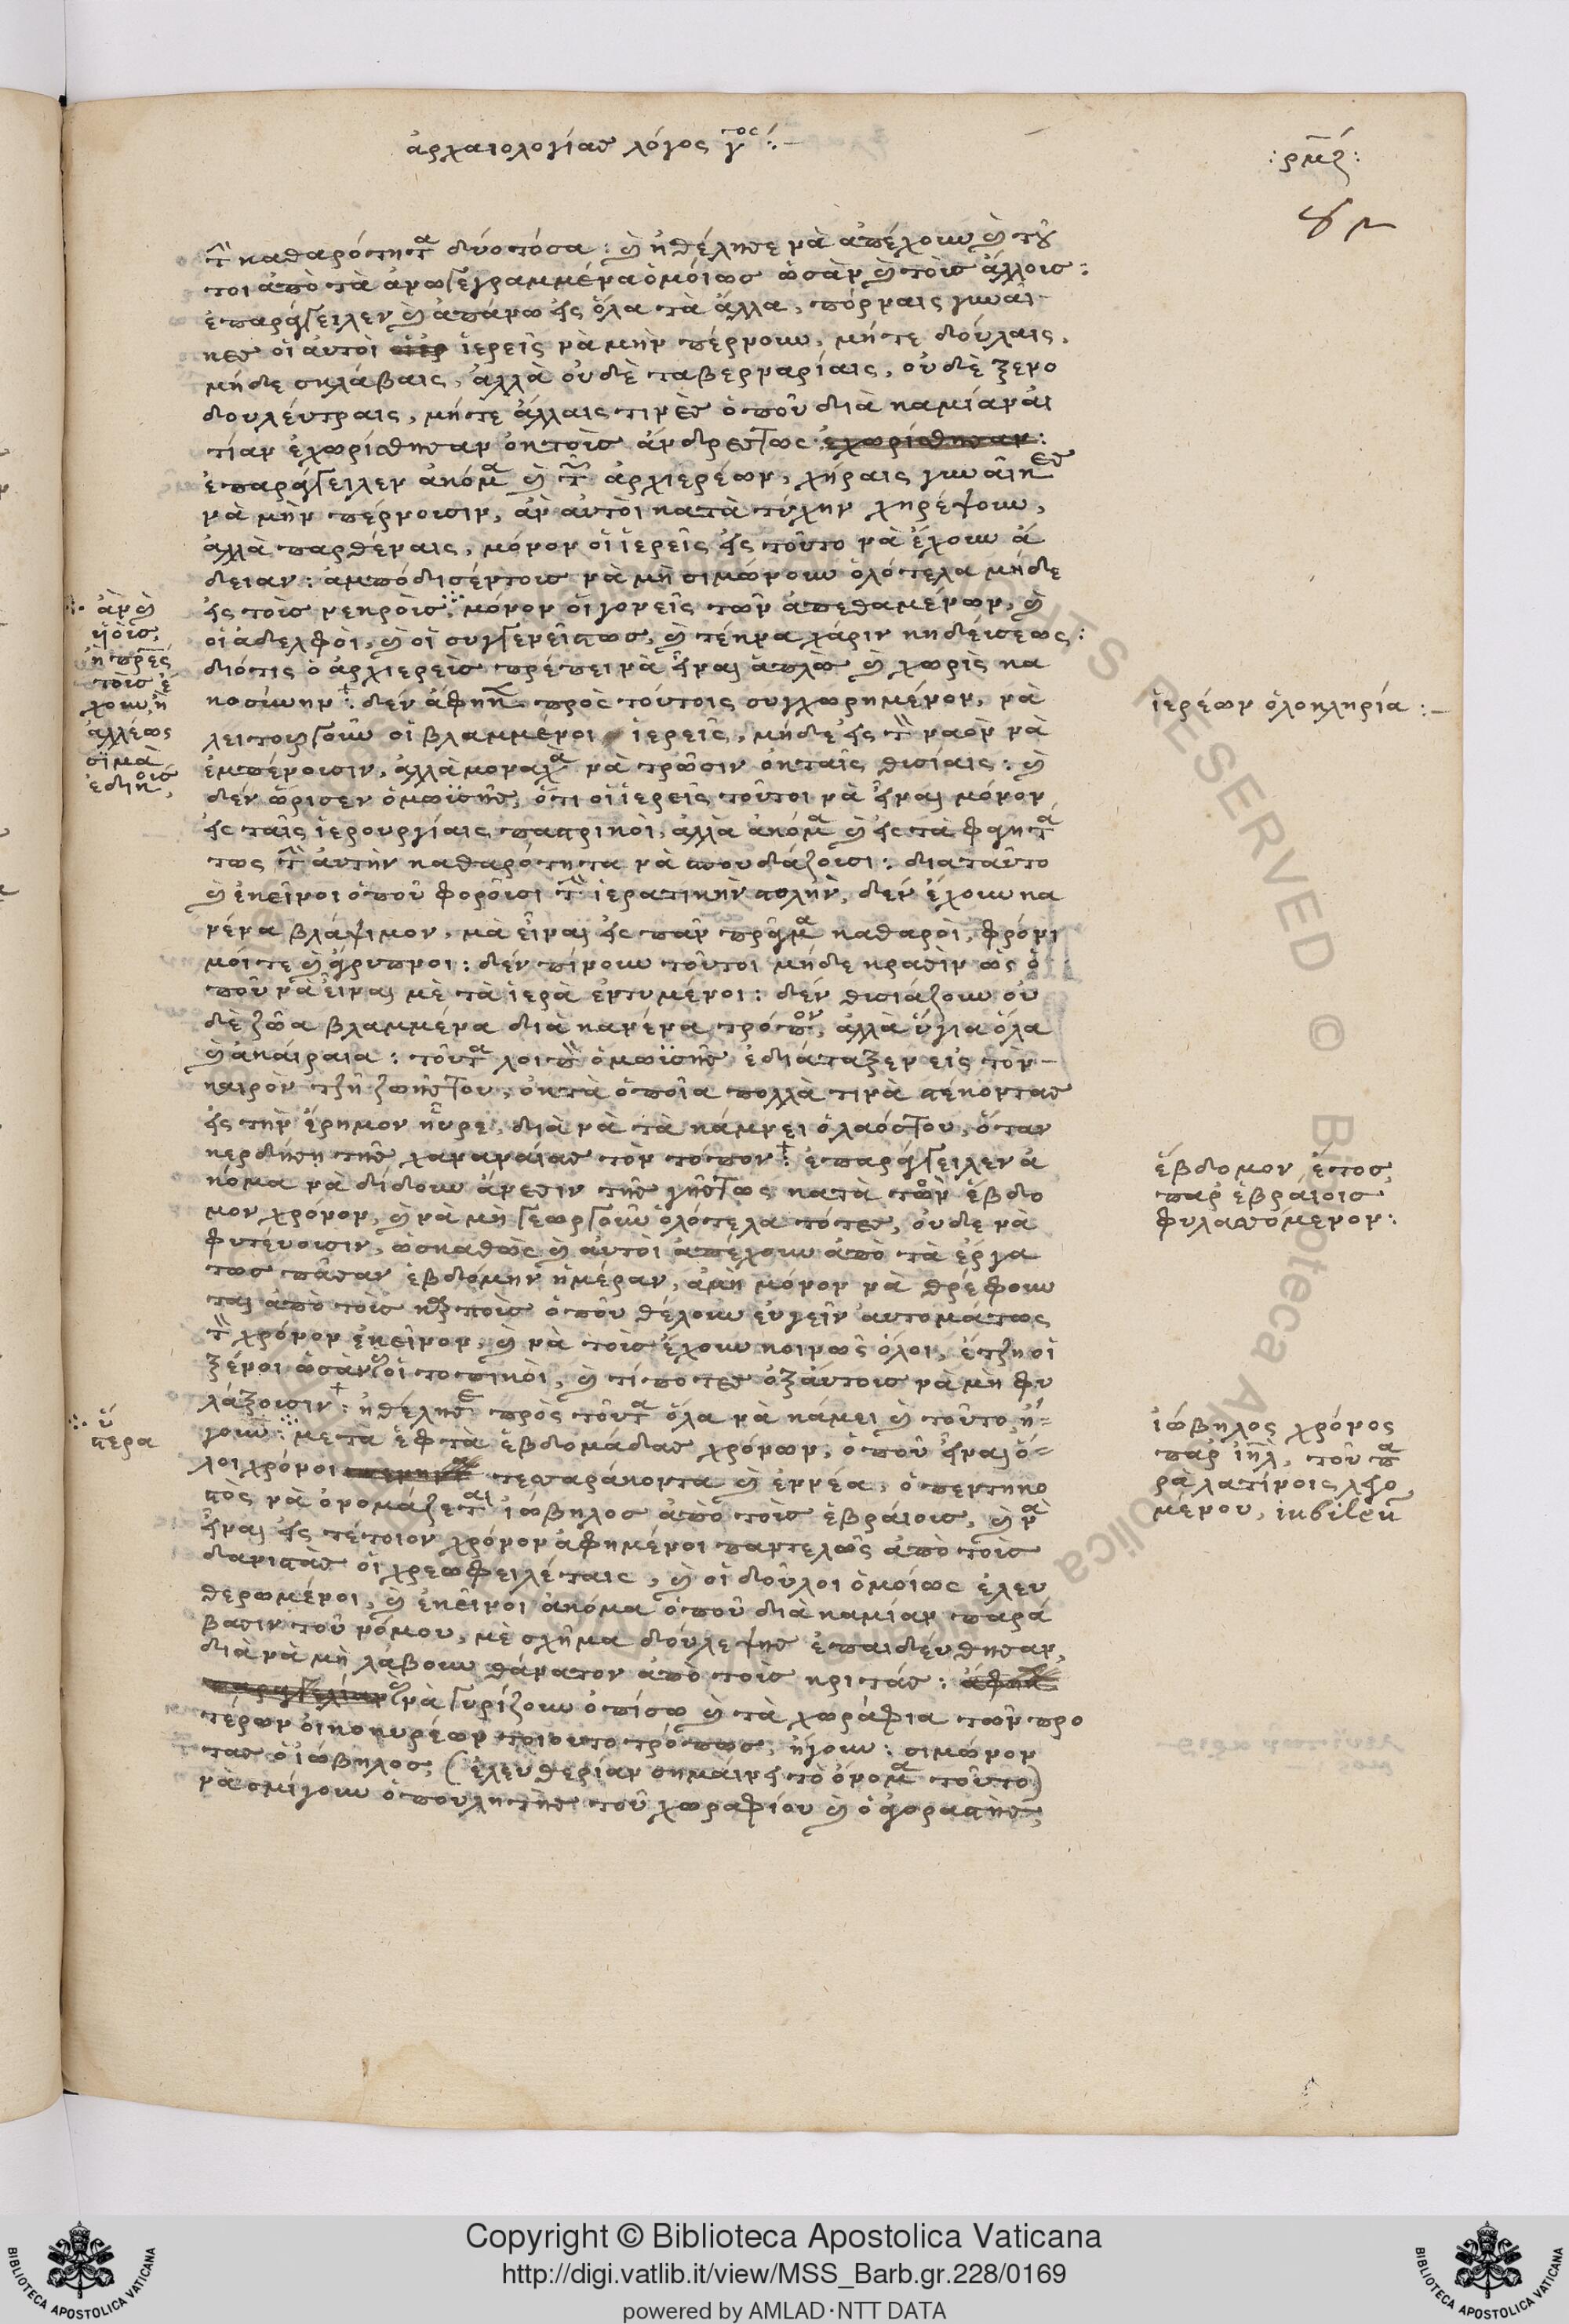 ἀρχαιολογίας λόγος γ^ος :-
:ρμζ:
τὴν καθαρότητα δυοτόσα: καὶ ἠθέλησε νὰ ἀπέχουν καὶ τοῦ
τοι ἀπὸ τὰ ἀνωγεγραμμένα ὁμοίως ὡσὰν καὶ τοὺς ἄλλους:
ἐπαράγγειλεν καὶ ἀπάνω εἰς ὅλα τὰ ἄλλα, πόρναις γυναῖ-
κες οἱ αὐτοὶ ἱερεῖς νὰ μὴν πέρνουν, μήτε δούλαις,
μήδε σκλάβαις, ἀλλὰ οὐδὲ ταβερναρίαις, οὐδὲ ξενο
δουλεύτραις, μήτε ἄλλαις τινὲς ὁποῦ διὰ καμίαν αἰ
τίαν ἐχωρίσθησαν ἐκ τοὺς ἄνδρες τως ἐχωρίσθησαν:
ἐπαράγγειλεν ἀκόμα καὶ τῶν ἀρχιερέων, χήραις γυναῖκες
νὰ μὴν πέρνουσιν, ἂν αὐτοὶ κατὰ τύχην χηρέψουν,
ἀλλὰ παρθέναις, μόνον οἱ ἱερεῖς εἰς τοῦτο νὰ ἔχουν ἄ
δειαν: ἀμποδισέν τους νὰ μὴ σιμώνουν ὁλότελα μήδε
εἰς τοὺς νεκρούς, μόνον οἱ γονεῖς τῶν ἀπεθαμένων, καὶ
οἱ ἀδελφοὶ, καὶ οἱ συγγενεῖς τως, καὶ τέκνα χάριν κηδεύσεως:
διότις ὁ ἀρχιερεὺς πρέπει νὰ εἶναι ἁπλὸς καὶ χωρὶς κα
κοσύνην: δὲν ἀφῆκε πρὸς τούτοις συγχωρημένον, νὰ
λειτουργοῦν οἱ βλαμμένοι ἱερεῖς, μήδε εἰς τὸν ναὸν νὰ
ἐμπένουσιν, ἀλλὰ μοναχὰ νὰ τρῶσιν ἐκ ταῖς θυσίαις: καὶ
δὲν ὥρισεν ὁ μωϋσῆς, ὅτι οἱ ἱερεῖς τοῦτοι νὰ εἶναι μόνον
εἰς ταῖς ἱερουργίαις παστρικοὶ, ἀλλὰ ἀκόμα καὶ εἰς τὰ φαγητὰ
τως τὴν αὐτὴν καθαρότητα νὰ σπουδάζουσι: διαταῦτο
καὶ ἐκεῖνοι ὁποῦ φοροῦσι τὴν ἱερατικὴν στολὴν, δὲν ἔχουν κα
νένα βλάψιμον, μὰ εἶναι εἰς πᾶν πρᾶγμα καθαροὶ, φρόνι
μοί τε καὶ ἄγρυπνοι: δὲν πίνουν τοῦτοι μήδε κρασὶν ὡς ὁ
ποῦ νὰ εἶναι μὲ τὰ ἱερὰ ἐντυμένοι: δὲν θυσιάζουν οὐ
δὲ ζῶα βλαμμένα διὰ κανένα τρόπον, ἀλλὰ ὑγιὰ ὅλα
καὶ ἀκαίραια: τοῦτα λοιπὸν ὁ μωϋσῆς ἐδιάταξεν εἰς τὸν-
καιρὸν τζῆ ζωῆς του, ἐκ τὰ ὁποῖα πολλά τινὰ στέκοντας
εἰς τὴν ἔρημον ηὗρε, διὰ νὰ τὰ κάμνει ὁ λαός του, ὅταν
κερδήση τῆς χαναναίας τὸν τόπον: ἐπαράγγειλεν ἀ
κόμα νὰ δίδουν ἄνεσιν τῆς γῆς τως κατὰ τὸν ἕβδο
μον χρόνον, καὶ νὰ μὴ γεωργοῦν ὁλότελα τότες, οὐδε νὰ
φυτεύουσιν, ὡσκαθὼς καὶ αὐτοὶ ἀπέχουν ἀπὸ τὰ ἔργα
τως πᾶσαν ἑβδόμην ἡμέραν, ἀμὴ μόνον νὰ θρέφουν
ται ἀπὸ τοὺς καρποὺς ὁποῦ θέλουν εὐγεῖν αὐτομάτως
τὸν χρόνον ἐκεῖνον, καὶ νὰ τοὺς ἔχουν κοινῶς ὅλοι, ἔτζη οἱ
ξένοι ὡσὰν καὶ οἱ τοπικοὶ, καὶ τίποτες ἐξ αὐτοὺς νὰ μὴ φυ
λάξουσιν: ἠθέλησε πρὸς τοῦτα ὅλα νὰ κάμει καὶ τοῦτο, ἤ-
γουν: μετὰ ἑφτὰ ἑβδομάδας χρόνων, ὁποῦ εἶναι ὅ-
λοι χρόνοι τεσσαράκοντα καὶ ἐννέα, ὁ πεντηκο
στὸς νὰ ὀνομάζεται ἰώβηλος ἀπὸ τοὺς ἑβραίους, καὶ νὰ
εἶναι εἰς τέτοιον χρόνον ἀφημένοι παντελῶς ἀπὸ τοὺς
δανιστὰς οἱ χρεωφειλέταις, καὶ οἱ δοῦλοι ὁμοίως ἐλευ
θερωμένοι, καὶ ἐκεῖνοι ἀκόμα ὁποῦ διὰ καμίαν παρά
βασιν τοῦ νόμου, μὲ σχῆμα δούλεψης ἐπαιδεύθησαν,
διὰ νὰ μὴ λάβουν θάνατον ἀπὸ τοὺς κριτάς:
καὶ νὰ γυρίζουν ὀπίσω καὶ τὰ χωράφια τῶν προ
τέρων οἰκοκυρέων τοιουτοτρόπως, ἤγουν: σιμώνον
τας ὁ ἰώβηλος, (ἐλευθερίαν σημαίνει τὸ ὄνομα τοῦτο)
νὰ σμίγουν ὁ πουλητὴς τοῦ χωραφίου καὶ ὁ ἀγοραστὴς,
ἱερέων ὁλοκληρία:-
ἕβδομον ἔτος,
παρ' ἑβραίοις
φυλασσόμενον:
ὕ
στερα
ἰώβηλος χρόνος
παρ' ἰηλ, τοῦ πα
ρὰ λατίνοις λεγο
μένου, iubileu
Copyright © Biblioteca Apostolica Vaticana
http://digi.vatlib.it/view/MSS_Barb.gr.228/0169
powered by AMLAD·NTT DATA
BIBLIOTECA APOSTOLICA VATICANA
BIBLIOTECA APOSTOLICA VATICANA